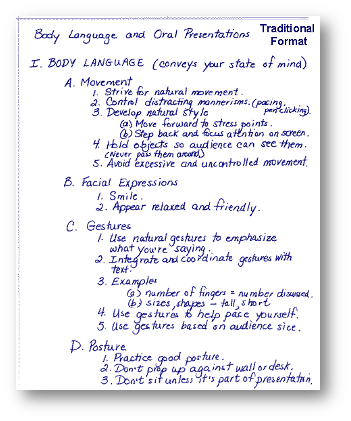 Body Language and Oral Presentations
Traditional Format
I. BODY LANGUAGE (conveys your state of mind)
A. Movement
1. Strive for natural movement.
2. Control distracting mannerisms. (pacing, pen clicking).
3. Develop natural style
(a) Move forward to stress points.
(b) Step back and focus attention on screen.
4. Hold objects so audience can see them.
(Never pass them around)
5. Avoid excessive and uncontrolled movement.
B. Facial Expressions
1. Smile.
2. Appear relaxed and friendly.
C. Gestures
1. Use natural gestures to emphasize
what you're saying.
2. Integrate and coordinate gestures with
text.
3. Examples
(a) number of fingers = number discussed.
(b) sizes, shapes - tall, short
4. Use gestures to help pace yourself.
5. Use gestures based on audience size.
D. Posture
1. Practice good posture.
2. Don't prop up against wall or desk.
3. Don't sit unless it's part of presentation.